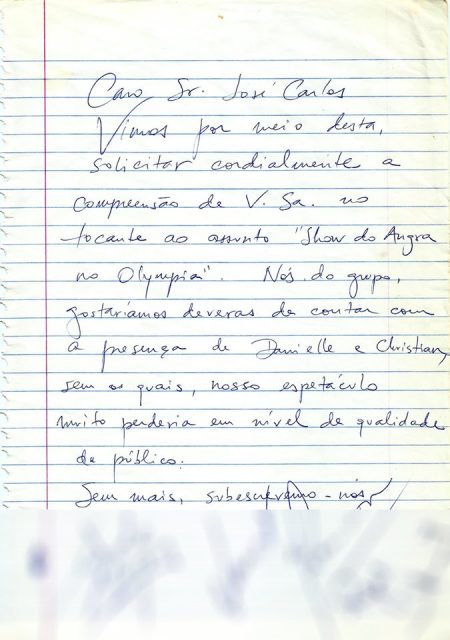 Caro Sr. José Carlos
Vimos por meio desta,
solicitar cordialmente a
compreensão de V. Sa. no
tocante ao assunto "Show do Angra
no Olympia". Nós do grupo,
gostaríamos deveras de contar com
a presença de Danielle e Christian,
sem os quais, nosso espetáculo
muito perderia em nível de qualidade
de público.
Sem mais, subescrevemo-nos